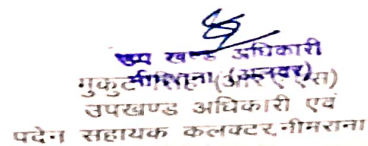 उप खण्ड अधिकारी
नीमराना (अलवर)
मुकुट सिंह (आर ए एस)
उपखण्ड अधिकारी एवं
पदेन सहायक कलक्टर, नीमराना